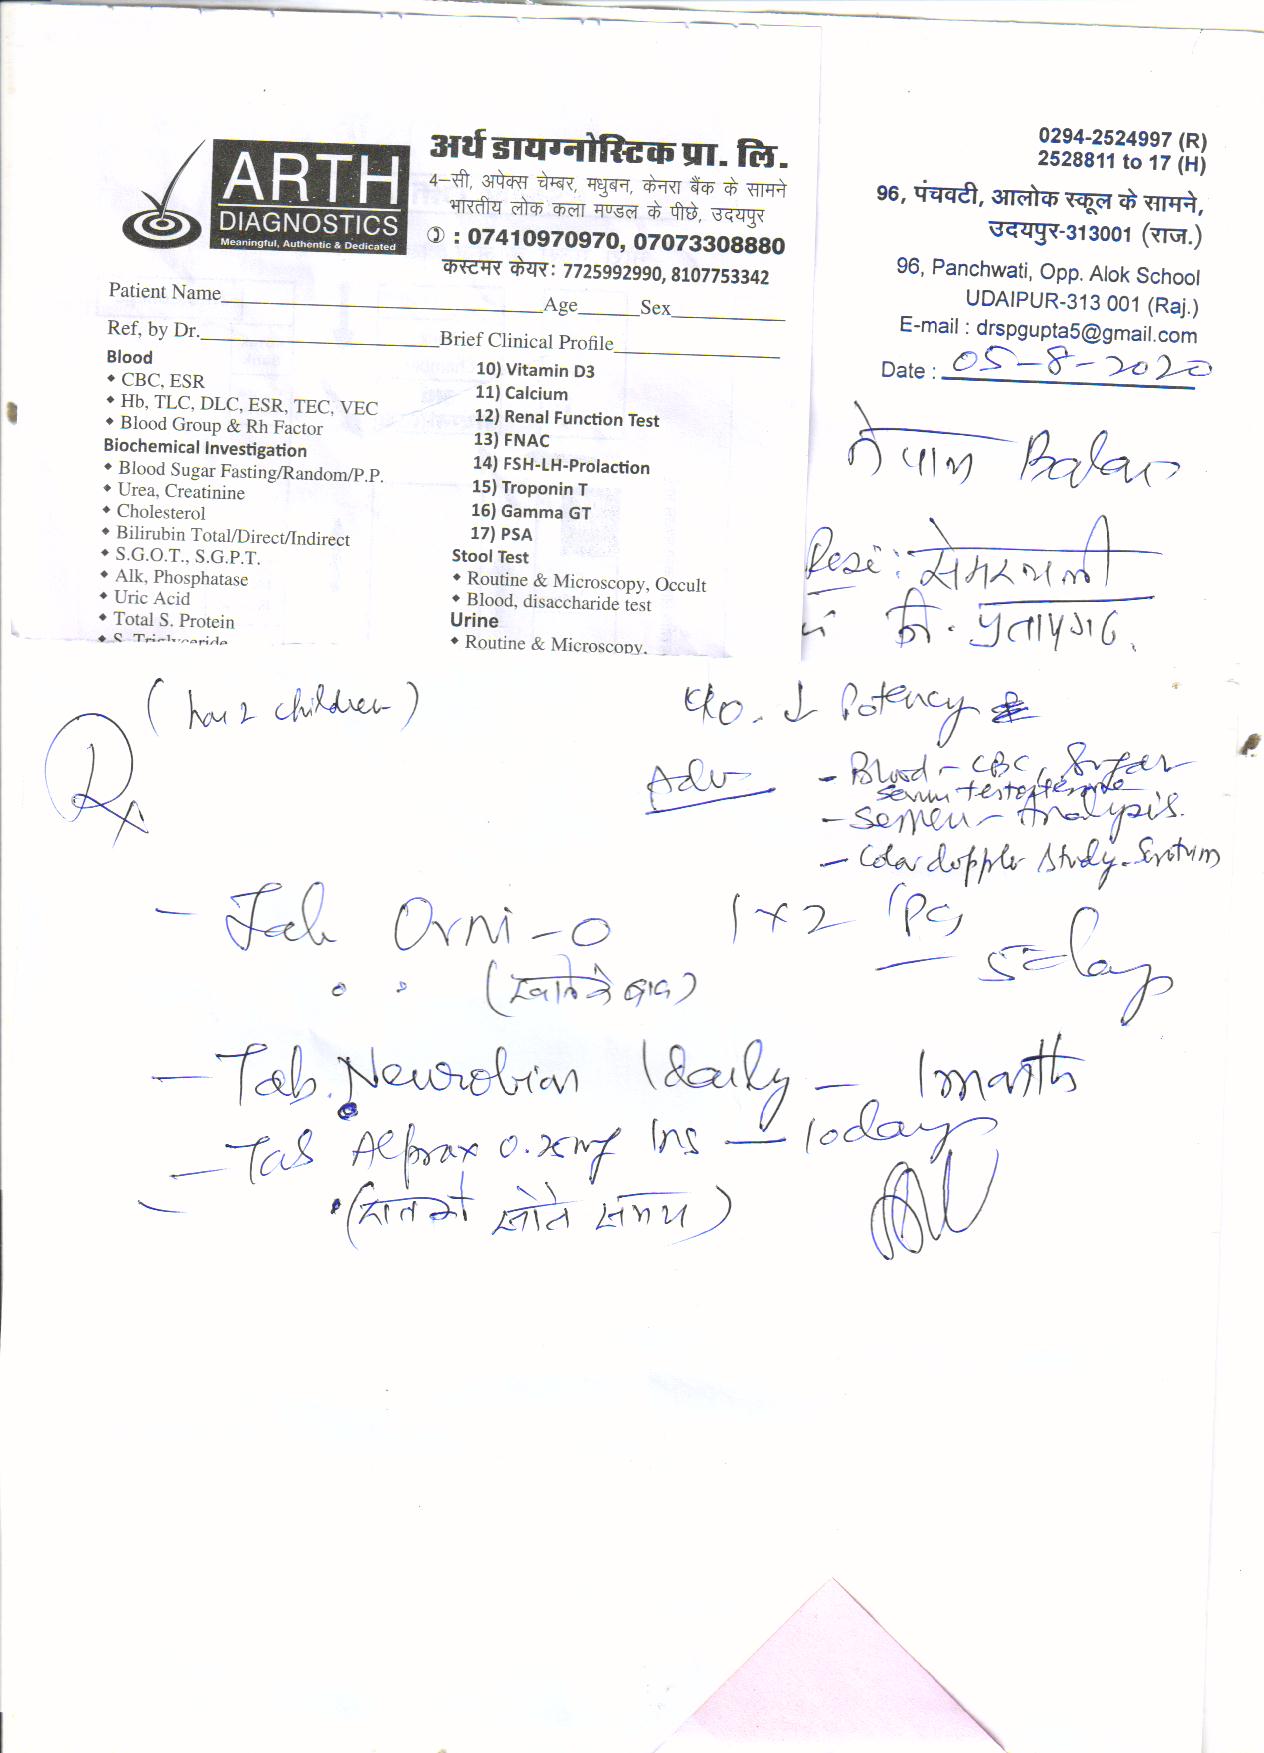 ARTH
DIAGNOSTICS
Meaningful, Authentic & Dedicated
अर्थ डायग्नोस्टिक प्रा. लि.
4-सी, अपेक्स चेम्बर, मधुबन, केनरा बैंक के सामने
भारतीय लोक कला मण्डल के पीछे, उदयपुर
: 07410970970, 07073308880
कस्टमर केयर: 7725992990, 8107753342
Patient Name Age Sex
Ref, by Dr. Brief Clinical Profile
Blood
• CBC, ESR
• Hb, TLC, DLC, ESR, TEC, VEC
• Blood Group & Rh Factor
Biochemical Investigation
• Blood Sugar Fasting/Random/P.P.
• Urea, Creatinine
• Cholesterol
• Bilirubin Total/Direct/Indirect
• S.G.O.T., S.G.P.T.
• Alk, Phosphatase
• Uric Acid
• Total S. Protein
• S. Triglyceride
10) Vitamin D3
11) Calcium
12) Renal Function Test
13) FNAC
14) FSH-LH-Prolaction
15) Troponin T
16) Gamma GT
17) PSA
Stool Test
• Routine & Microscopy, Occult
• Blood, disaccharide test
Urine
• Routine & Microscopy,
0294-2524997 (R)
2528811 to 17 (H)
96, पंचवटी, आलोक स्कूल के सामने,
उदयपुर-313001 (राज.)
96, Panchwati, Opp. Alok School
UDAIPUR-313 001 (Raj.)
E-mail : drspgupta5@gmail.com
Date : 05-8-2020
Resi:
जि. प्रतापगढ.
(has 2 children)
c/o. ↓ Potency
Rx
Adv - Blood - CBC, Sugar
Serum testosterone
- Semen - Analysis.
- Color doppler Study - Scrotum
- Tab Orni-O 1x2 PC - 5 day
(खाने के बाद)
- Tab. Neurobion 1 daily - 1 month
- Tab Alprax 0.25mg 1 HS - 10 days
(रात को सोते समय)